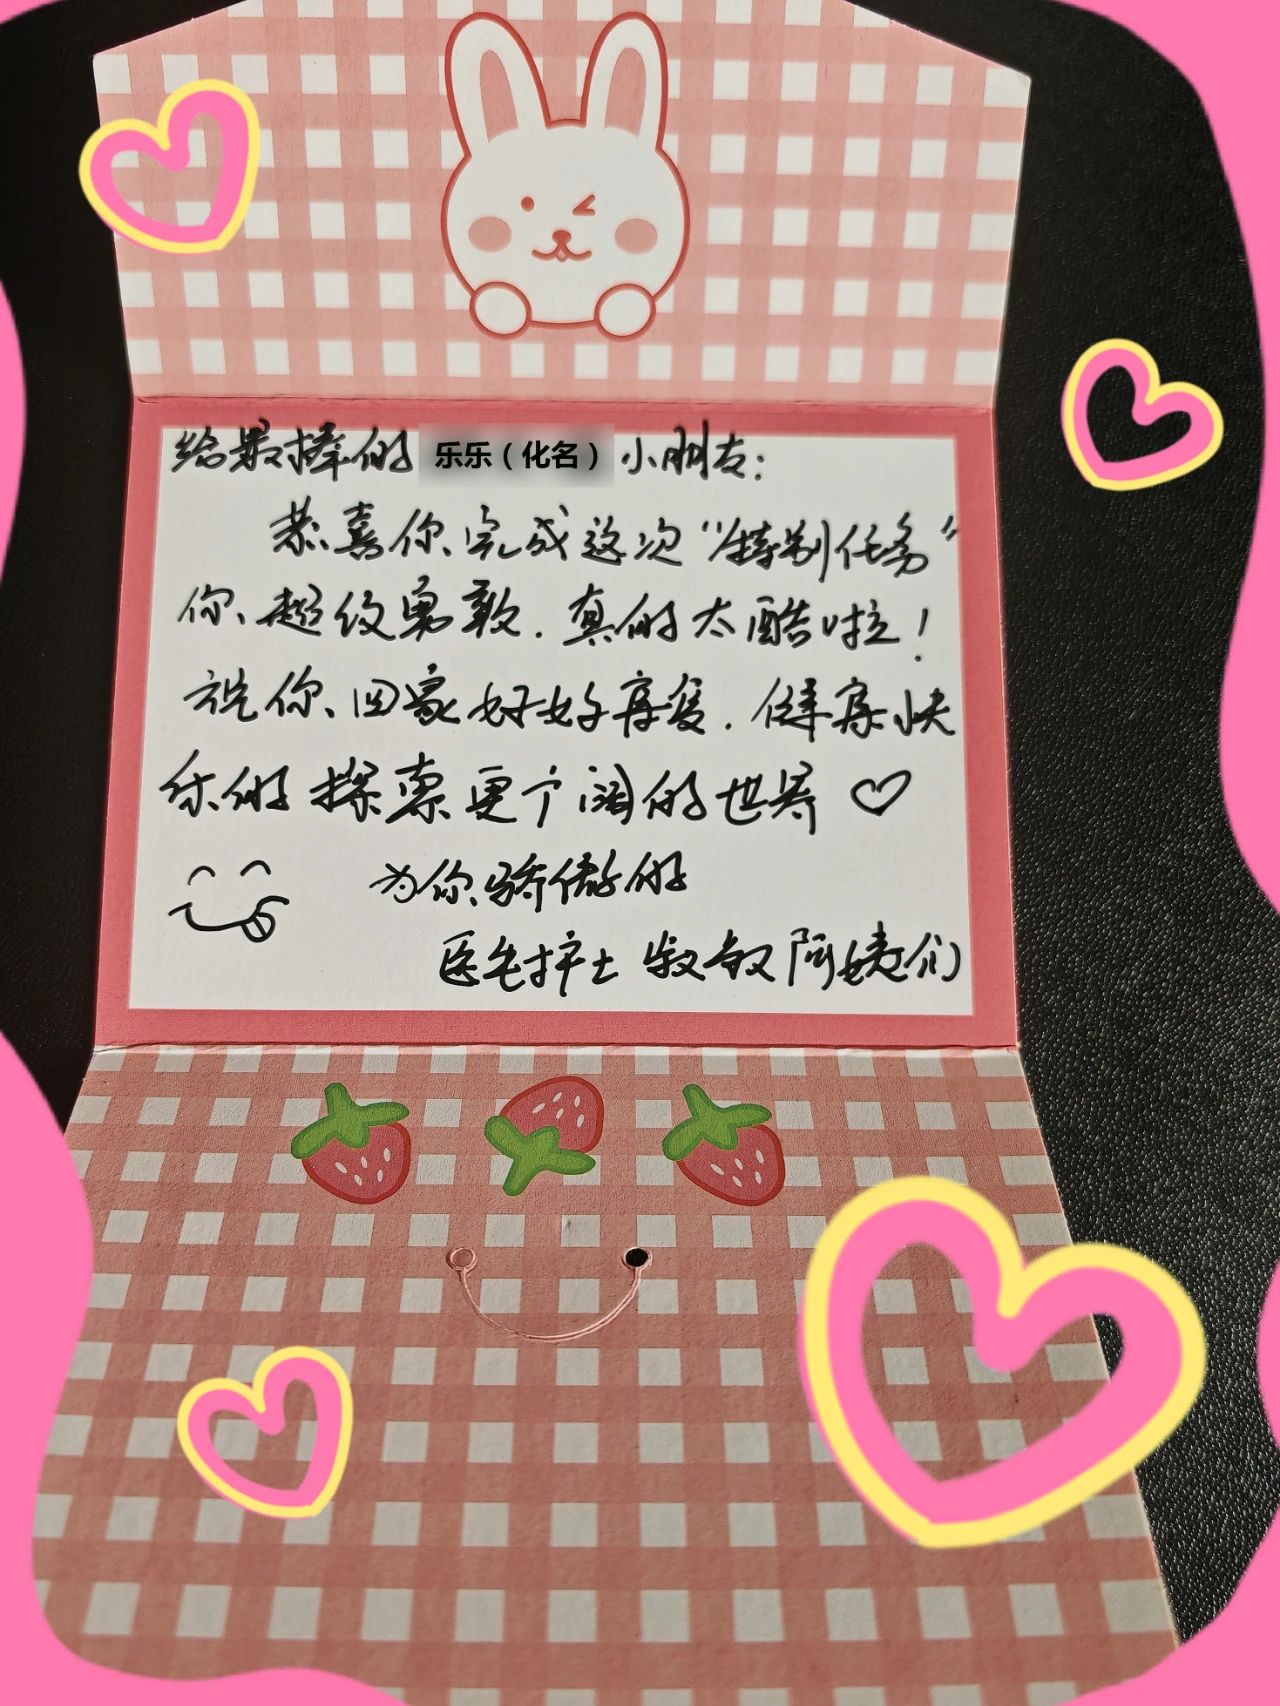 给最棒的 乐乐（化名） 小朋友：
恭喜你完成这次“特别任务”
你超级勇敢．真的太酷啦！
祝你回家好好康复．健康快
乐的探索更广阔的世界
为你骄傲的
医生护士 叔叔阿姨们